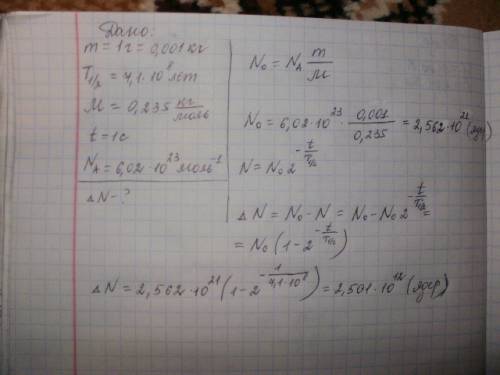 Дано:
m = 1г = 0,001 кг
T₁/₂ = 7,1·10⁸ лет
M = 0,235 кг/моль
t = 1c
N_A = 6,02·10²³ моль⁻¹
ΔN - ?
N₀ = N_A m/M
N₀ = 6,02·10²³ · 0,001/0,235 = 2,562·10²¹ (яд)
N = N₀ 2^(-t/T₁/₂)
ΔN = N₀ - N = N₀ - N₀ 2^(-t/T₁/₂) =
= N₀ (1 - 2^(-t/T₁/₂))
ΔN = 2,562·10²¹ (1 - 2^(-1/7,1·10⁸)) = 2,501·10¹² (ядер)